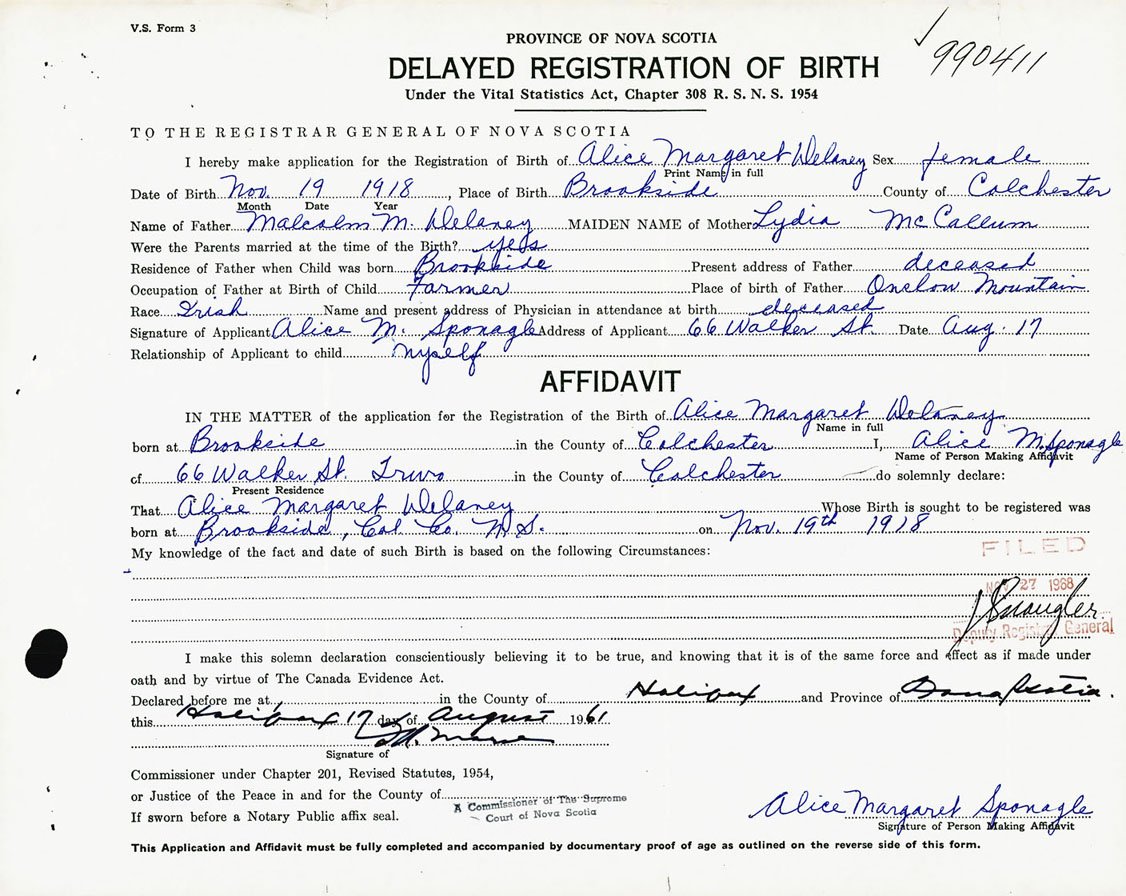 V.S. Form 3
990411
PROVINCE OF NOVA SCOTIA
DELAYED REGISTRATION OF BIRTH
Under the Vital Statistics Act, Chapter 308 R. S. N. S. 1954
TO THE REGISTRAR GENERAL OF NOVA SCOTIA
I hereby make application for the Registration of Birth of Alice Margaret Delaney Sex female
Print Name in full
Date of Birth Nov. 19 1918, Place of Birth Brookside County of Colchester
Month Date Year
Name of Father Malcolm M. Delaney MAIDEN NAME of Mother Lydia McCallum
Were the Parents married at the time of the Birth? yes
Residence of Father when Child was born Brookside Present address of Father deceased
Occupation of Father at Birth of Child Farmer Place of birth of Father Onslow Mountain
Race Irish Name and present address of Physician in attendance at birth deceased
Signature of Applicant Alice M. Sponagle Address of Applicant 66 Walker St. Date Aug. 17
Relationship of Applicant to child myself
AFFIDAVIT
IN THE MATTER of the application for the Registration of the Birth of Alice Margaret Delaney
Name in full
born at Brookside in the County of Colchester I, Alice M. Sponagle
Name of Person Making Affidavit
of 66 Walker St. Truro in the County of Colchester do solemnly declare:
Present Residence
That Alice Margaret Delaney Whose Birth is sought to be registered was
born at Brookside, Col. Co. N.S. on Nov. 19th 1918
My knowledge of the fact and date of such Birth is based on the following Circumstances:
FILED
NOV 27 1968
Deputy Registrar General
I make this solemn declaration conscientiously believing it to be true, and knowing that it is of the same force and effect as if made under
oath and by virtue of The Canada Evidence Act.
Declared before me at in the County of Halifax and Province of Nova Scotia.
this Halifax 17 day of August 1961
Signature of
Commissioner under Chapter 201, Revised Statutes, 1954,
or Justice of the Peace in and for the County of
A Commissioner of The Supreme
Court of Nova Scotia
If sworn before a Notary Public affix seal.
Alice Margaret Sponagle
Signature of Person Making Affidavit
This Application and Affidavit must be fully completed and accompanied by documentary proof of age as outlined on the reverse side of this form.